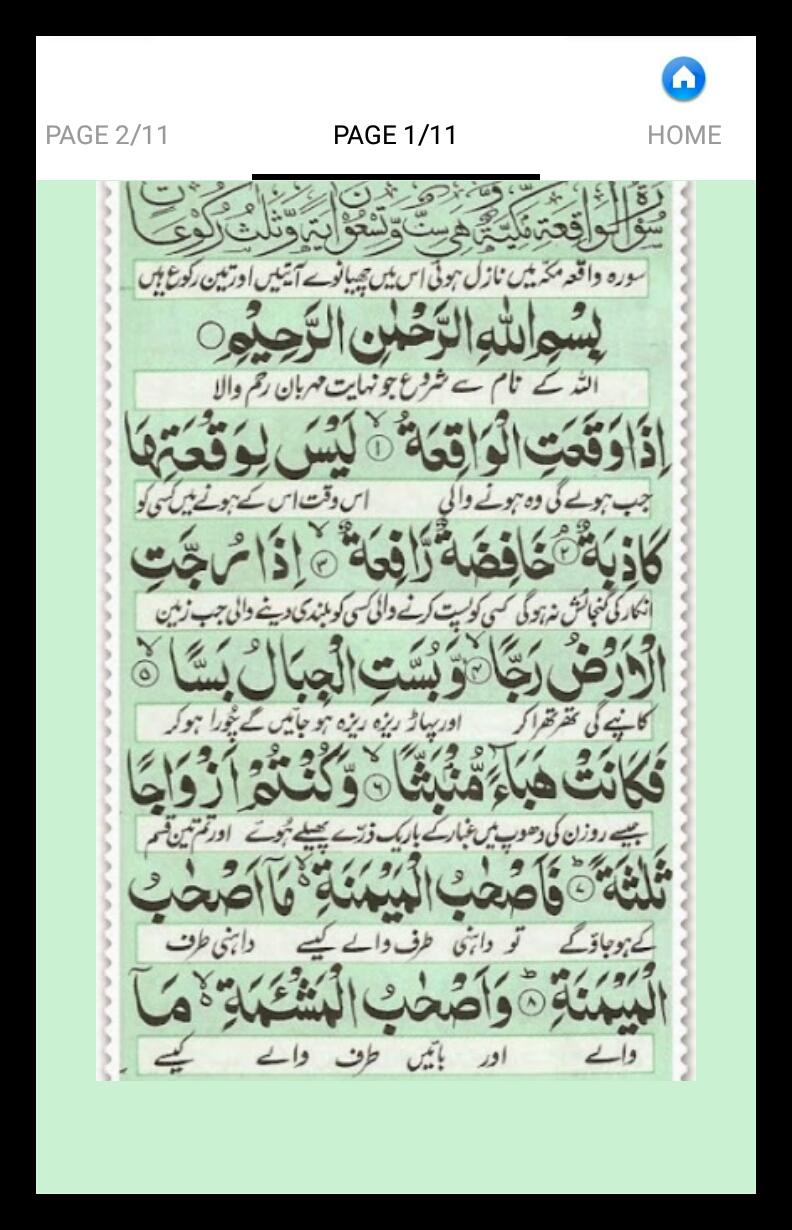 PAGE 2/11 PAGE 1/11 HOME
سُوْرَةُ الْوَاقِعَةِ مَكِّيَّةٌ وَّهِيَ سِتٌّ وَّتِسْعُوْنَ اٰيَةً وَّثَلٰثُ رُكُوْعَاتٍ
سورہ واقعہ مکہ میں نازل ہوئی اس میں چھیانوے آیتیں اور تین رکوع ہیں
بِسْمِ اللّٰهِ الرَّحْمٰنِ الرَّحِيْمِ ○
اللہ کے نام سے شروع جو نہایت مہربان رحم والا
اِذَا وَقَعَتِ الْوَاقِعَةُ ۙ۱ لَيْسَ لِوَقْعَتِهَا
جب ہولے گی وہ ہونے والی اس وقت اس کے ہونے میں کسی کو
كَاذِبَةٌ ۘ۲ خَافِضَةٌ رَّافِعَةٌ ۙ۳ اِذَا رُجَّتِ
انکار کی گنجائش نہ ہوگی کسی کو پست کرنے والی کسی کو بلندی دینے والی جب زمین
الْاَرْضُ رَجًّا ۙ۴ وَّبُسَّتِ الْجِبَالُ بَسًّا ۙ۵
کانپے گی تھرتھرا کر اور پہاڑ ریزہ ریزہ ہو جائیں گے چورا ہو کر
فَكَانَتْ هَبَآءً مُّنْۢبَثًّا ۙ۶ وَّكُنْتُمْ اَزْوَاجًا
جیسے روزن کی دھوپ میں غبار کے باریک ذرّے پھیلے ہوئے اور تم تین قسم
ثَلٰثَةً ؕ۷ فَاَصْحٰبُ الْمَيْمَنَةِ ۙ۬ مَاۤ اَصْحٰبُ
کے ہو جاؤ گے تو داہنی طرف والے کیسے داہنی طرف
الْمَيْمَنَةِ ؕ۸ وَاَصْحٰبُ الْمَشْـَٔمَةِ ۙ۬ مَاۤ
والے اور بائیں طرف والے کیسے